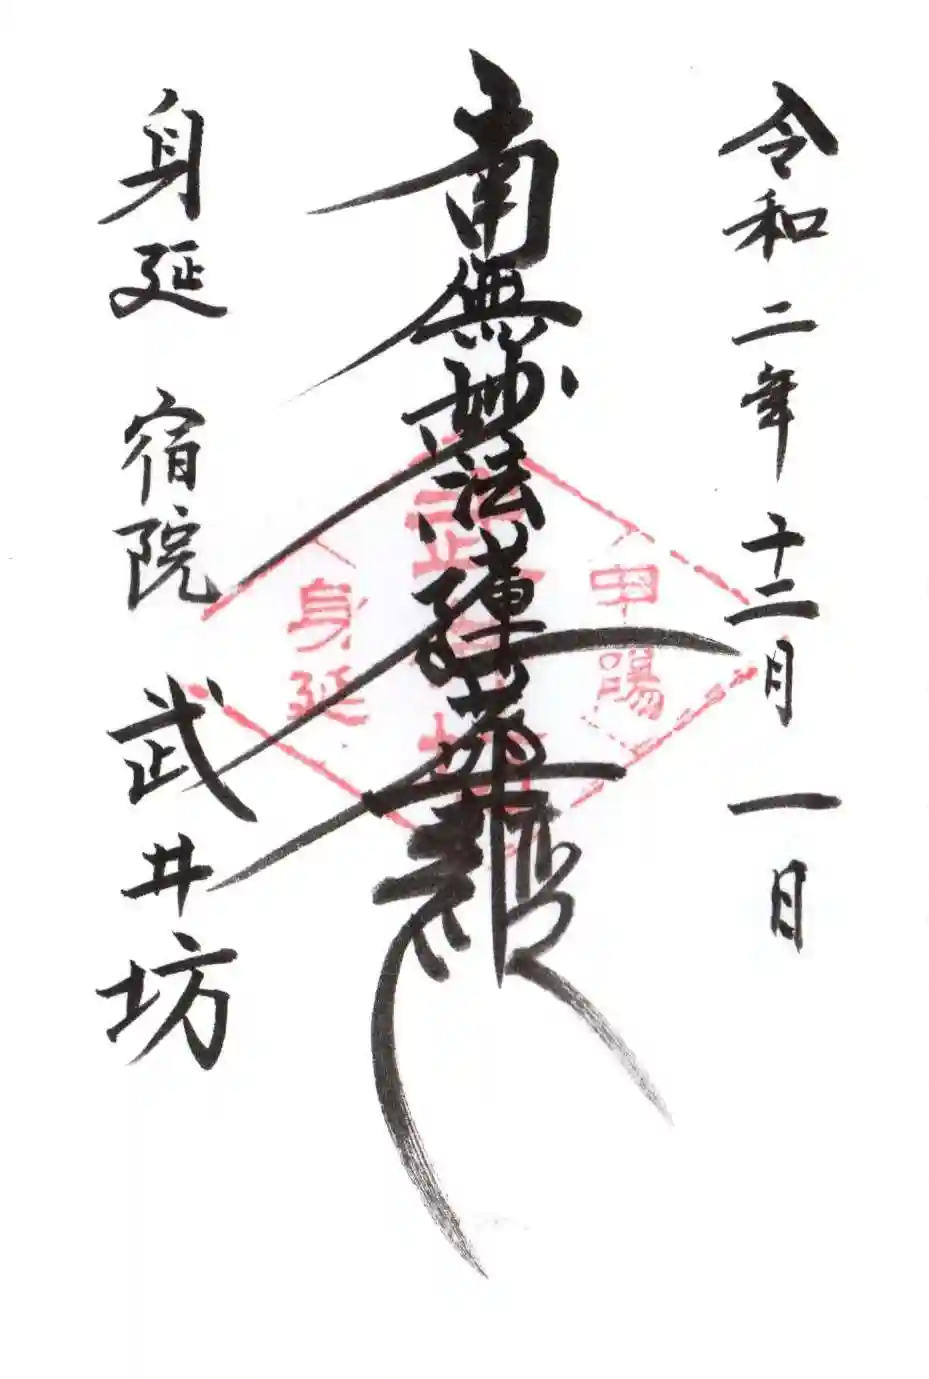 令和二年十二月一日
南無妙法蓮華経
甲陽
武井坊
身延
身延 宿院 武井坊